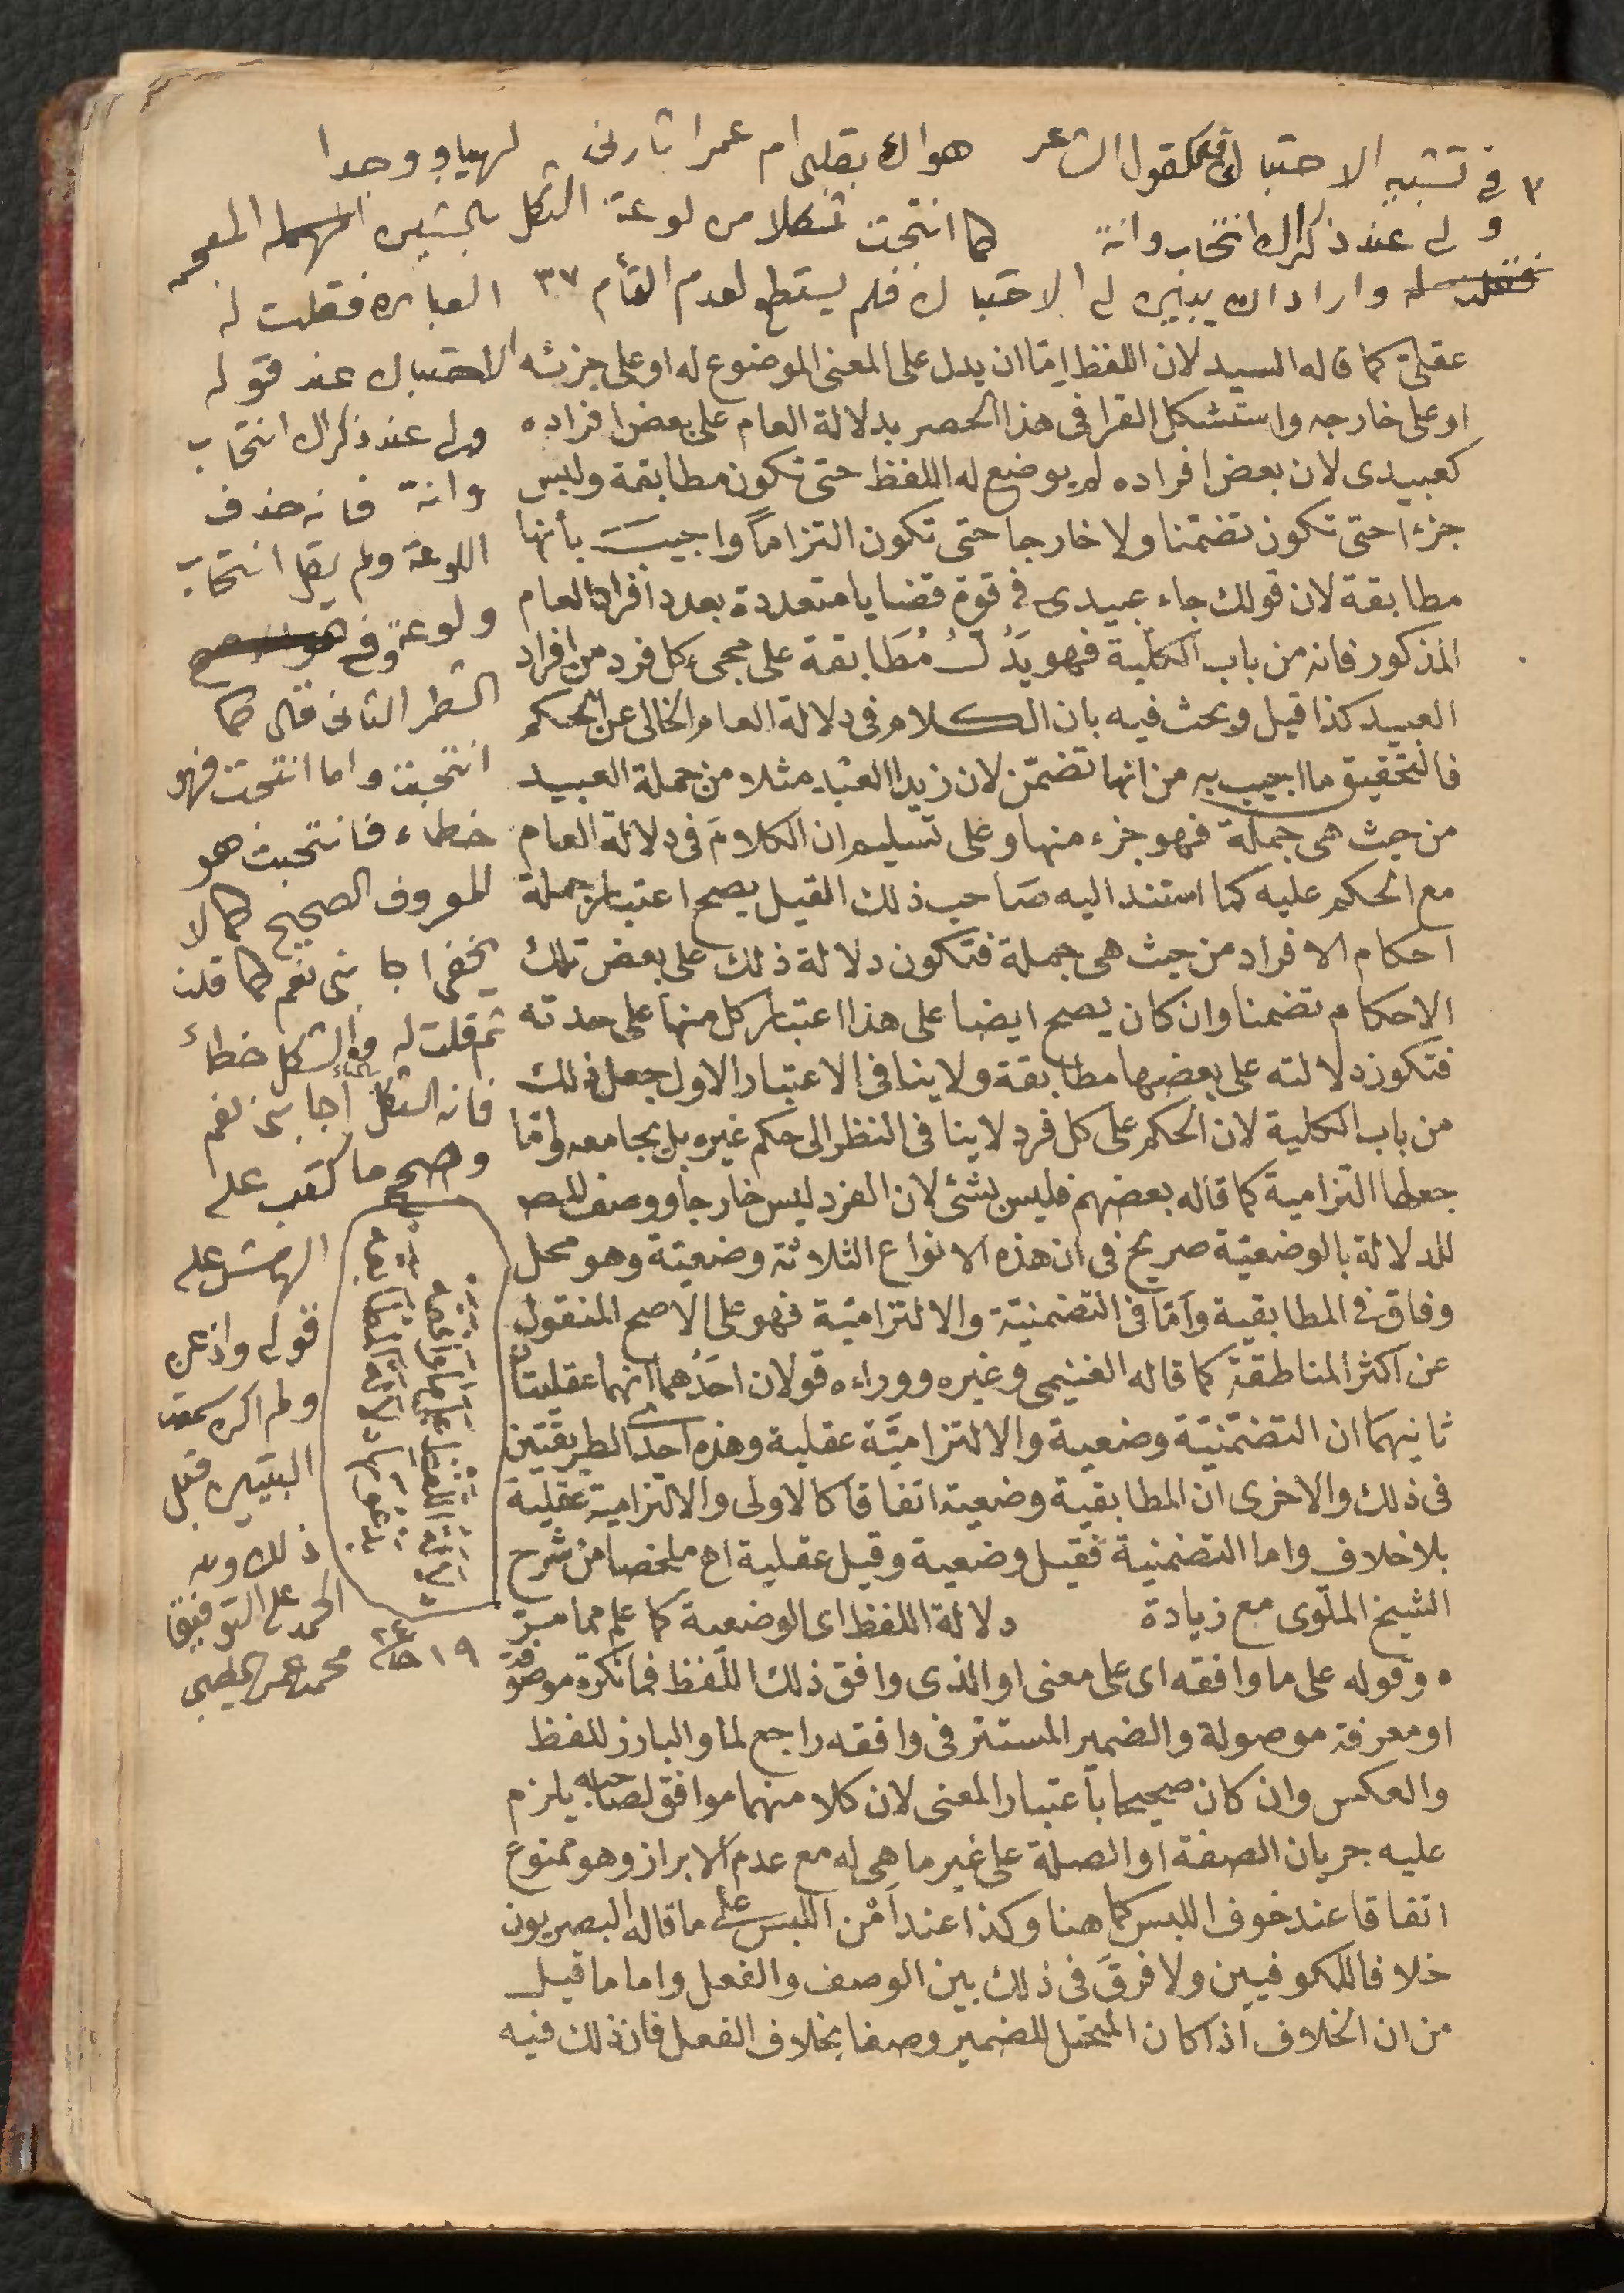 ٣ فى تشبيه الاحتباك فكقول الشاعر هواك بقلبى ام عمرا ثارنى لهيبا ووجدا
ولى عند ذكراك انتحاب وانة كما انتحبت ثكلا من لوعة الثكل المعجمه
واراد ان يبين لى الاحتباك فلم يستطع لعدم التأم ٣٧ العباره فقلت له
عقلى كما قاله السيد لان اللفظ اما ان يدل على المعنى الموضوع له او على جزئه
او على خارجه واستشكل القرافى هذا الحصر بدلالة العام على بعض افراده
كعبيدى لان بعض افراده لم يوضع له اللفظ حتى تكون مطابقة وليس
جزءا حتى تكون تضمنا ولا خارجا حتى تكون التزاماً واجيبَ بأنها
مطابقة لان قولك جاء عبيدى فى قوة قضايا متعددة بعدد افراد العام
المذكور فانه من باب الكلية فهو يَدُلُّ مُطَابقة على مجىء كل فرد من افراد
العبيد كذا قيل وبحث فيه بان الكلام فى دلالة العام الخالى عن الحكم
فالتحقيق ما اجيب به من انها تضمّن لان زيدا العَبْد مثلا من جملة العبيد
من حيث هى جملة فهو جزء منها وعلى تسليم ان الكلامَ فى دلالة العام
مع الحكم عليه كما استند اليه صَاحب ذلك القيل يصح اعتبار جملة
احكام الافراد من حيث هى جملة فتكون دلالة ذلك على بعض تلك
الاحكام تضمنا وان كان يصح ايضا على هذا اعتبار كل منها على حدته
فتكون دلالته على بعضها مطابقة ولا ينافى الاعتبار الاول جعل ذلك
من باب الكلية لان الحكم على كل فرد لا ينافى النظر الى حكم غيره بل يجامعه وامّا
جعلها التزامية كما قاله بعضهم فليس بشئ لان الفرد ليس خارجا ووصف المص
للدلالة بالوضعيّة صريح فى ان هذه الانواع الثلاثة وضعيّة وهو محل
وفاق فى المطابقية وَامّا فى التضمنيّة والالتزاميّة فهو على الاصح المنقول
عن اكثر المناطقة كما قاله الغنيمى وغيره ووراءه قولان احَدُهما انهما عقليتان
ثانيهما ان التضمّنيّة وضعية والالتزاميَّة عقلية وهذه احدى الطريقتين
فى ذلك والاخرى ان المطابقية وضعية اتفاقا كالاولى والالتزامية عقلية
بلا خلاف واما التضمنية فقيل وضعية وقيل عقلية اهـ ملخصا من شرح
الشيخ الملّوى مع زيادة دلالة اللفظ اى الوضعية كما علم مما مرّ
ه وقوله على ما وافقه اى على معنى او الذى وافق ذلك اللّفظ فما نكرة موصوفة
او معرفة موصولة والضمير المستتر فى وافقه راجع لما والبارز للفظ
والعكس وان كان صحيحا باعتبار المعنى لان كلا منهما موافق لصاحبه يلزم
عليه جريان الصفة او الصلة على غير ما هى له مع عدم الابراز وهو ممنوع
اتفاقا عند خوف اللبس كما هنا وكذا عند اَمْن اللبس على ما قاله البصريون
خلافا للكوفيين ولا فرقَ فى ذلك بين الوصف والفعل واما ما قيل
من ان الخلاف اذا كان المتحمل للضمير وصفا بخلاف الفعل فان ذلك فيه
الاحتباك عند قوله
ولى عند ذكراك انتحاب
وانة فانه حذف
اللوعة ولم يقل انتحاب
ولوعة وفى
الشطر الثانى قال كما
انتحبت واما انتحت فهو
خطاء فانتحبت هو
المعروف الصحيح كما لا
يخفى اجابنى نعم كما قلت
ثم قلت له والشكل خطأ
فانه الثكل أجابنى نعم
وصحح ما كتب على
الهامش على
قوله واذعن
ولم اكن سمعت
البيتين قبل
ذلك وله
الحمد على التوفيق
محمد عمر الخطيب
١٩